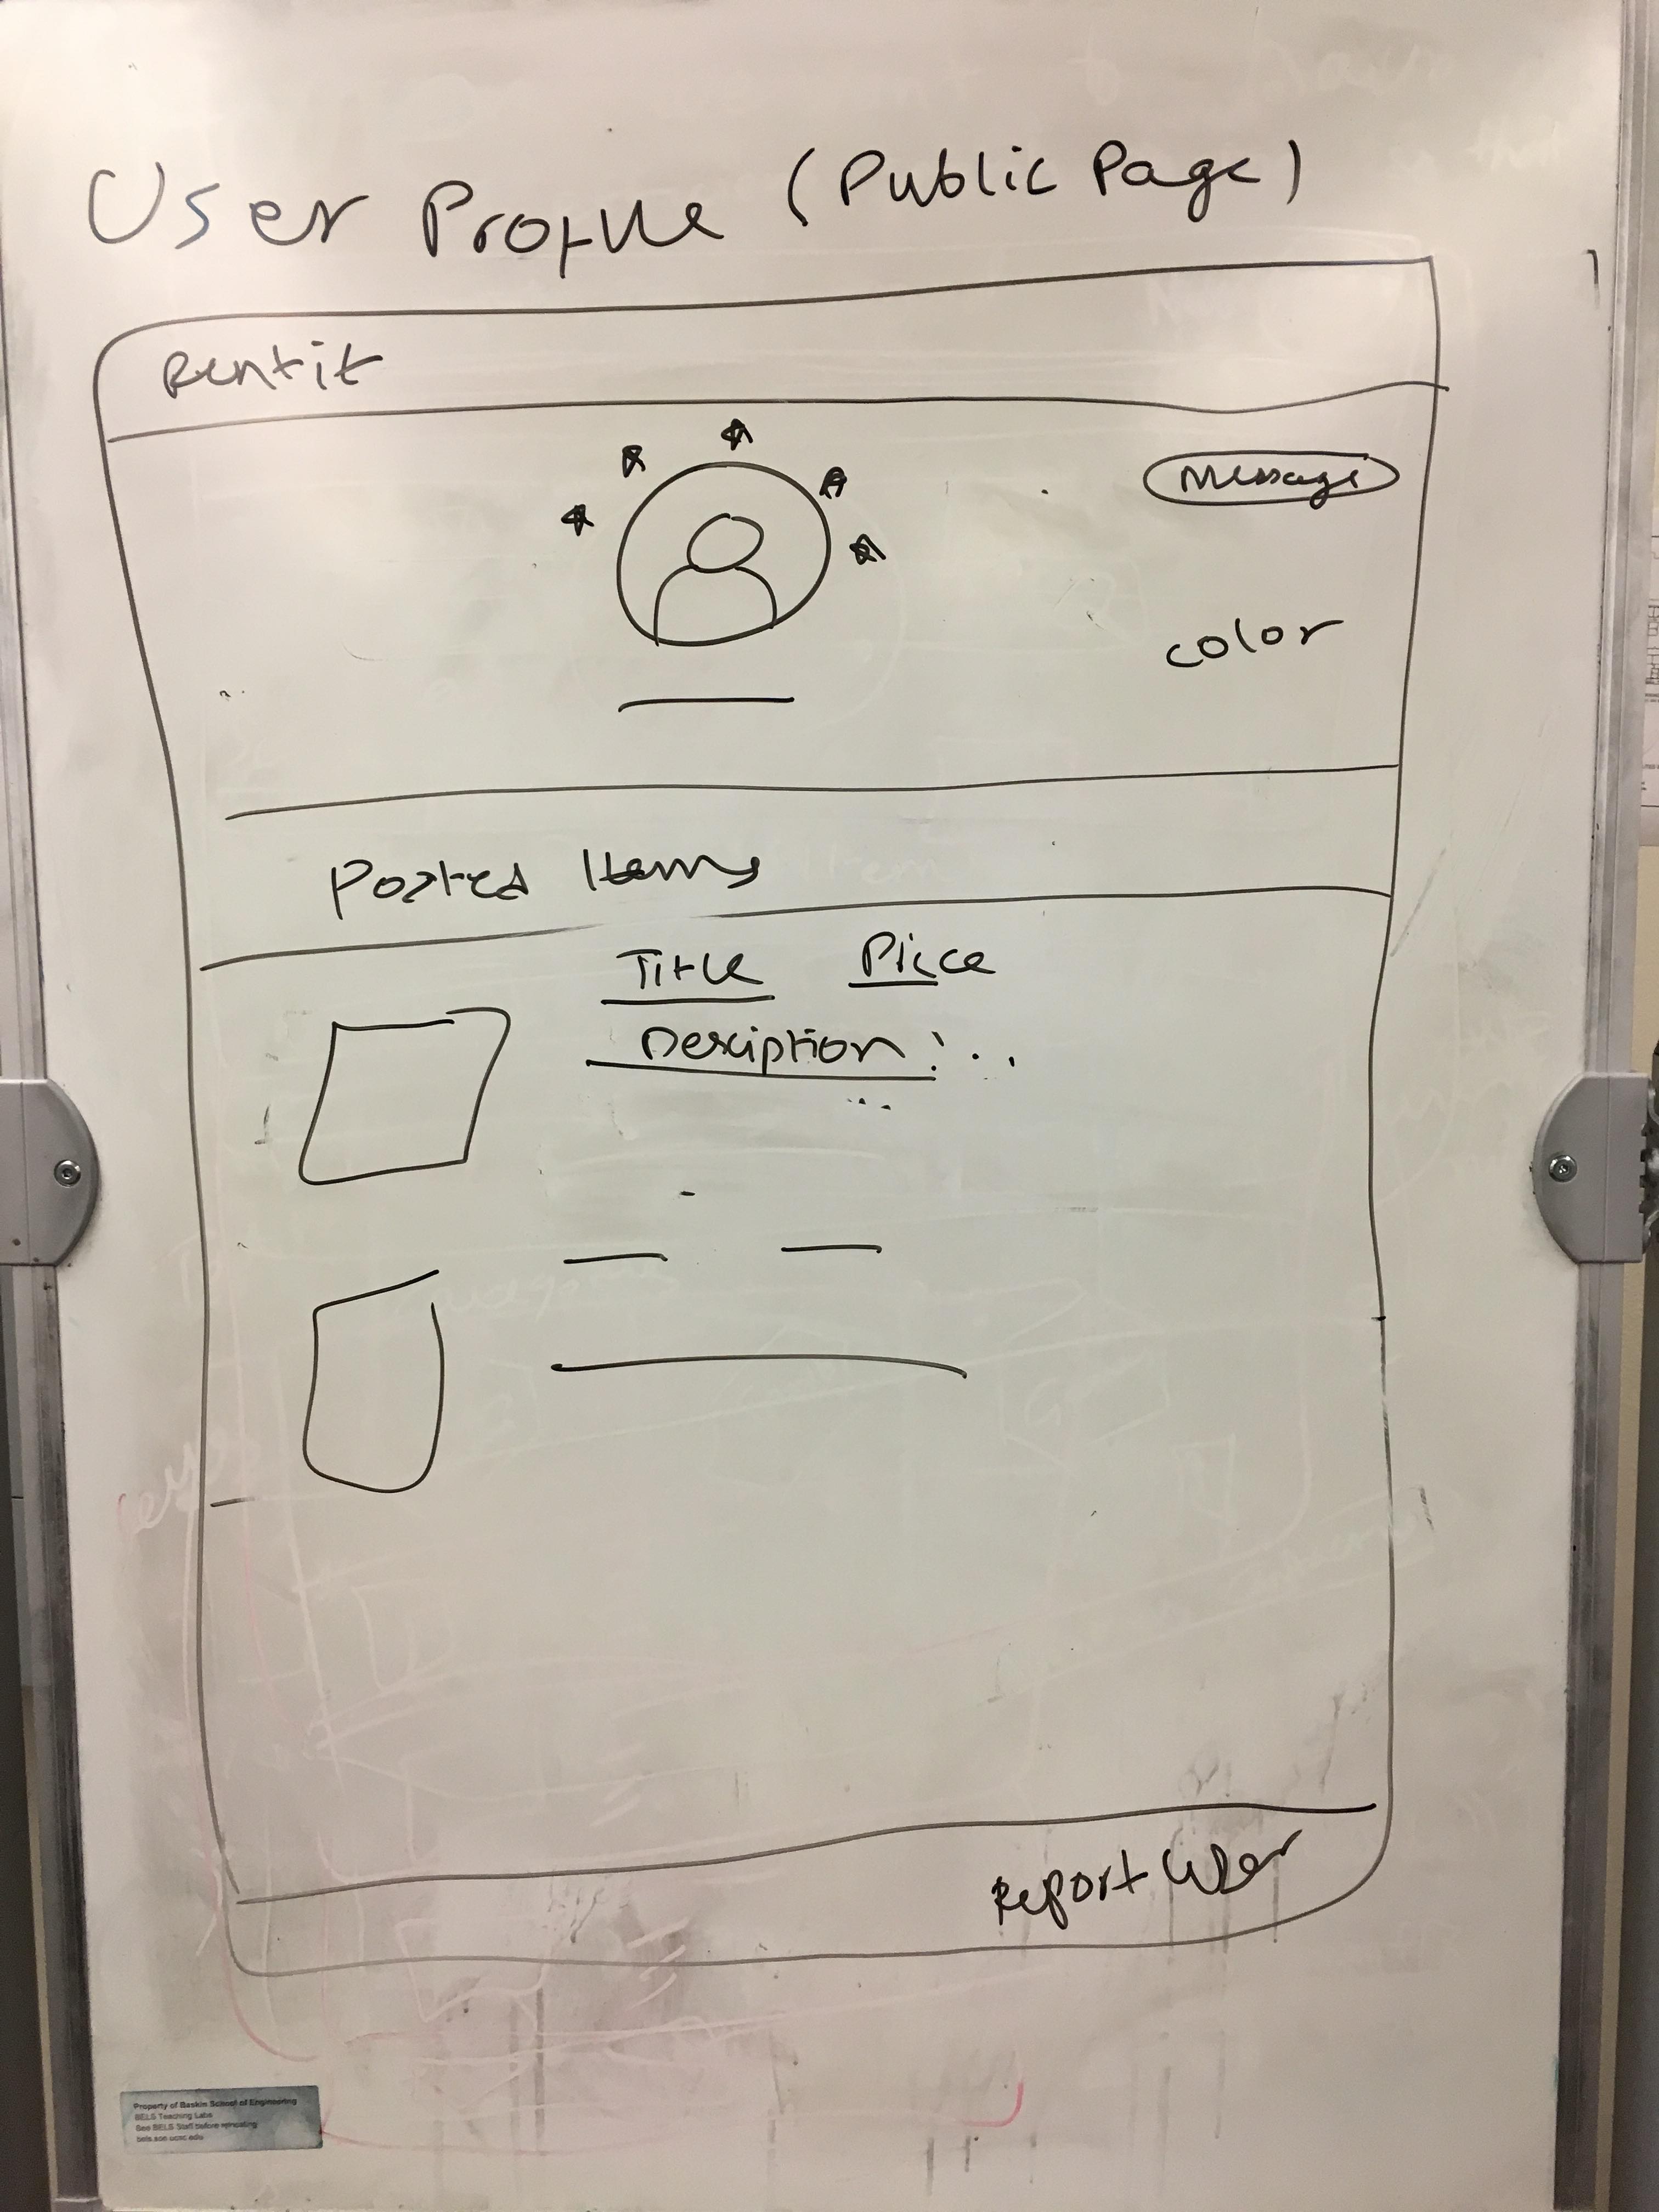 User Profile (Public Page)
Rentit
Message
color
Posted Items
Title Price
Desciption : ...
...
Report User
Property of Baskin School of Engineering
BELS Teaching Labs
See BELS Staff before
bels.soe.ucsc.edu